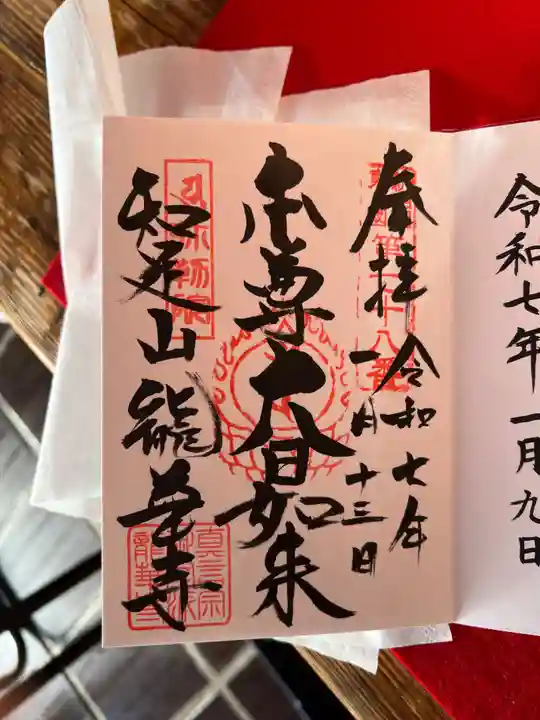 令和七年一月九日
奉拝
令和七年
一月十三日
本尊大日如来
知足山龍華寺